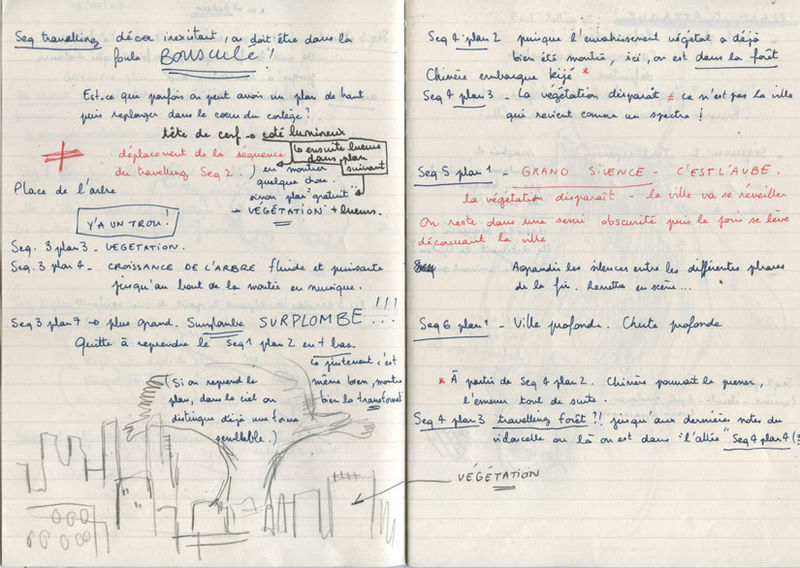 Seq travelling décor inexistant, on doit être dans la
foule BOUSCULE !
Est-ce que parfois on peut avoir un plan de haut
puis replonger dans le cœur du cortège ?
tête de cerf → coté lumineux
↳ ensuite lueurs
dans plan
suivant
≠ déplacement de la séquence
du travelling Seq 2.
) en montrer
quelque chose.
sinon plan "gratuit"
→ VÉGÉTATION + lueurs.
Place de l'arbre
Y'A UN TROU !
Seq. 3 plan 3 - VEGETATION.
Seq. 3 plan 4 - CROISSANCE DE L'ARBRE fluide et puissante
jusqu'au bout de la montée en musique.
Seq 3 plan 7 → plus grand. Surplombe SURPLOMBE !!!
Quitte à reprendre le Seq 1 plan 2 en + bas.
↳ justement c'est
même bien, montre
bien la transformat°
(Si on reprend le
plan, dans le ciel on
distingue déjà une forme
semblable.)
Seq 4 plan 2 puisque l'envahissement végétal a déjà
bien été montré, ici, on est dans la forêt
Chimère embarque kijé *
Seq 4 plan 3 - La végétation disparaît ≠ ce n'est pas la ville
qui revient comme un spectre !
Seq 5 plan 1 - GRAND SILENCE - C'EST L'AUBE.
la végétation disparaît - la ville va se réveiller
On reste dans une semi obscurité puis le jour se lève
découvrant la ville
Agrandir les silences entre les différentes phrases
de la fin. Remettre en scène...
Seq 6 plan 1 - Ville profonde. Chute profonde
* À partir de Seq 4 plan 2. Chimère pourrait la
l'emmener tout de suite.
Seq 4 plan 3 travelling forêt ?! jusqu'aux dernières notes du
violoncelle où là on est dans "l'allée" Seq 4 plan 4 (?
VÉGÉTATION